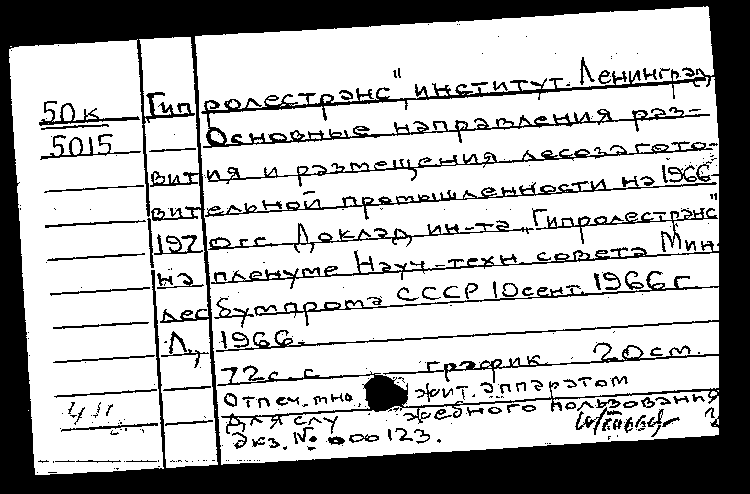 50к
5015
Гипролестранс", институт. Ленинград
Основные направления раз-
вития и размещения лесозагото-
вительной промышленности на 1966-
1970гг. Доклад ин-та „Гипролестранс"
на пленуме Науч.-техн. совета Мин-
лесбумпрома СССР 10 сент. 1966 г.
Л., 1966.
72с. с график 20см.
Отпеч. мно жит. аппаратом
Для слу жебного пользования
Экз. № 000123.